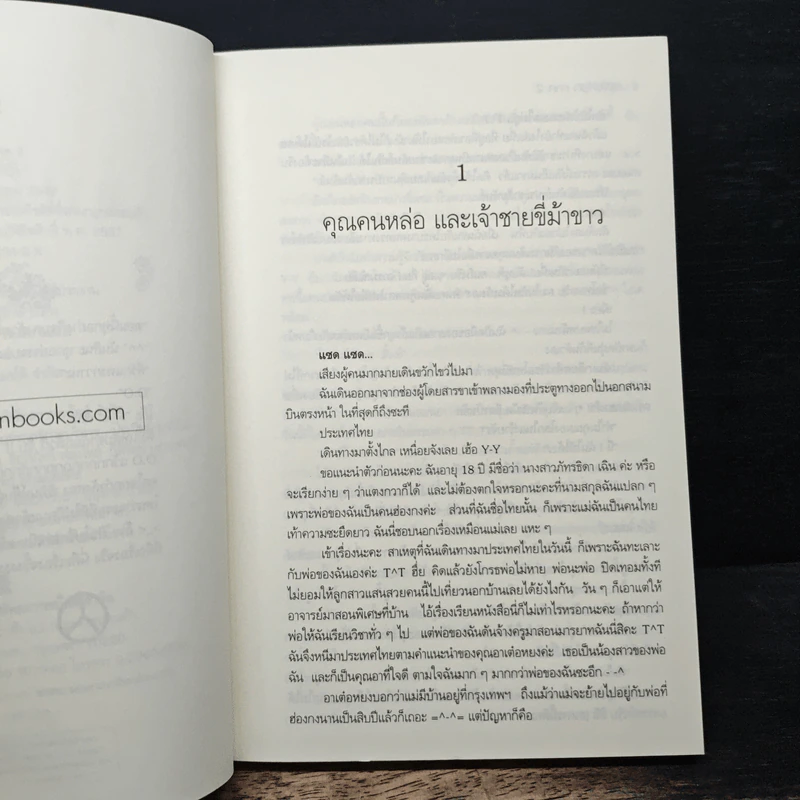 nbooks.com
1
คุณคนหล่อ และเจ้าชายขี่ม้าขาว
แซด แซด...
เสียงผู้คนมากมายเดินขวักไขว่ไปมา
ฉันเดินออกมาจากช่องผู้โดยสารขาเข้าพลางมองที่ประตูทางออกไปนอกสนาม
บินตรงหน้า ในที่สุดก็ถึงซะที
ประเทศไทย
เดินทางมาตั้งไกล เหนื่อยจังเลย เฮ้อ Y-Y
ขอแนะนำตัวก่อนนะคะ ฉันอายุ 18 ปี มีชื่อว่า นางสาวภัทรธิดา เฉิน ค่ะ หรือ
จะเรียกง่าย ๆ ว่าแตงกวาก็ได้ และไม่ต้องตกใจหรอกนะคะที่นามสกุลฉันแปลก ๆ
เพราะพ่อของฉันเป็นคนฮ่องกงค่ะ ส่วนที่ฉันชื่อไทยนั้น ก็เพราะแม่ฉันเป็นคนไทย
เท้าความซะยืดยาว ฉันนี่ชอบนอกเรื่องเหมือนแม่เลย แหะ ๆ
เข้าเรื่องนะคะ สาเหตุที่ฉันเดินทางมาประเทศไทยในวันนี้ ก็เพราะฉันทะเลาะ
กับพ่อของฉันเองค่ะ T^T ฮึ่ย คิดแล้วยังโกรธพ่อไม่หาย พ่อนะพ่อ ปิดเทอมทั้งที
ไม่ยอมให้ลูกสาวแสนสวยคนนี้ไปเที่ยวนอกบ้านเลยได้ยังไงกัน วัน ๆ ก็เอาแต่ให้
อาจารย์มาสอนพิเศษที่บ้าน ไอ้เรื่องเรียนหนังสือนี่ก็ไม่เท่าไรหรอกนะคะ ถ้าหากว่า
พ่อให้ฉันเรียนวิชาทั่ว ๆ ไป แต่พ่อของฉันดันจ้างครูมาสอนมารยาทฉันนี่สิคะ T^T
ฉันจึงหนีมาประเทศไทยตามคำแนะนำของคุณอาเต่อหยงค่ะ เธอเป็นน้องสาวของพ่อ
ฉัน และก็เป็นคุณอาที่ใจดี ตามใจฉันมาก ๆ มากกว่าพ่อของฉันซะอีก - -^
อาเต่อหยงบอกว่าแม่มีบ้านอยู่ที่กรุงเทพฯ ถึงแม้ว่าแม่จะย้ายไปอยู่กับพ่อที่
ฮ่องกงนานเป็นสิบปีแล้วก็เถอะ =^-^= แต่ปัญหาก็คือ